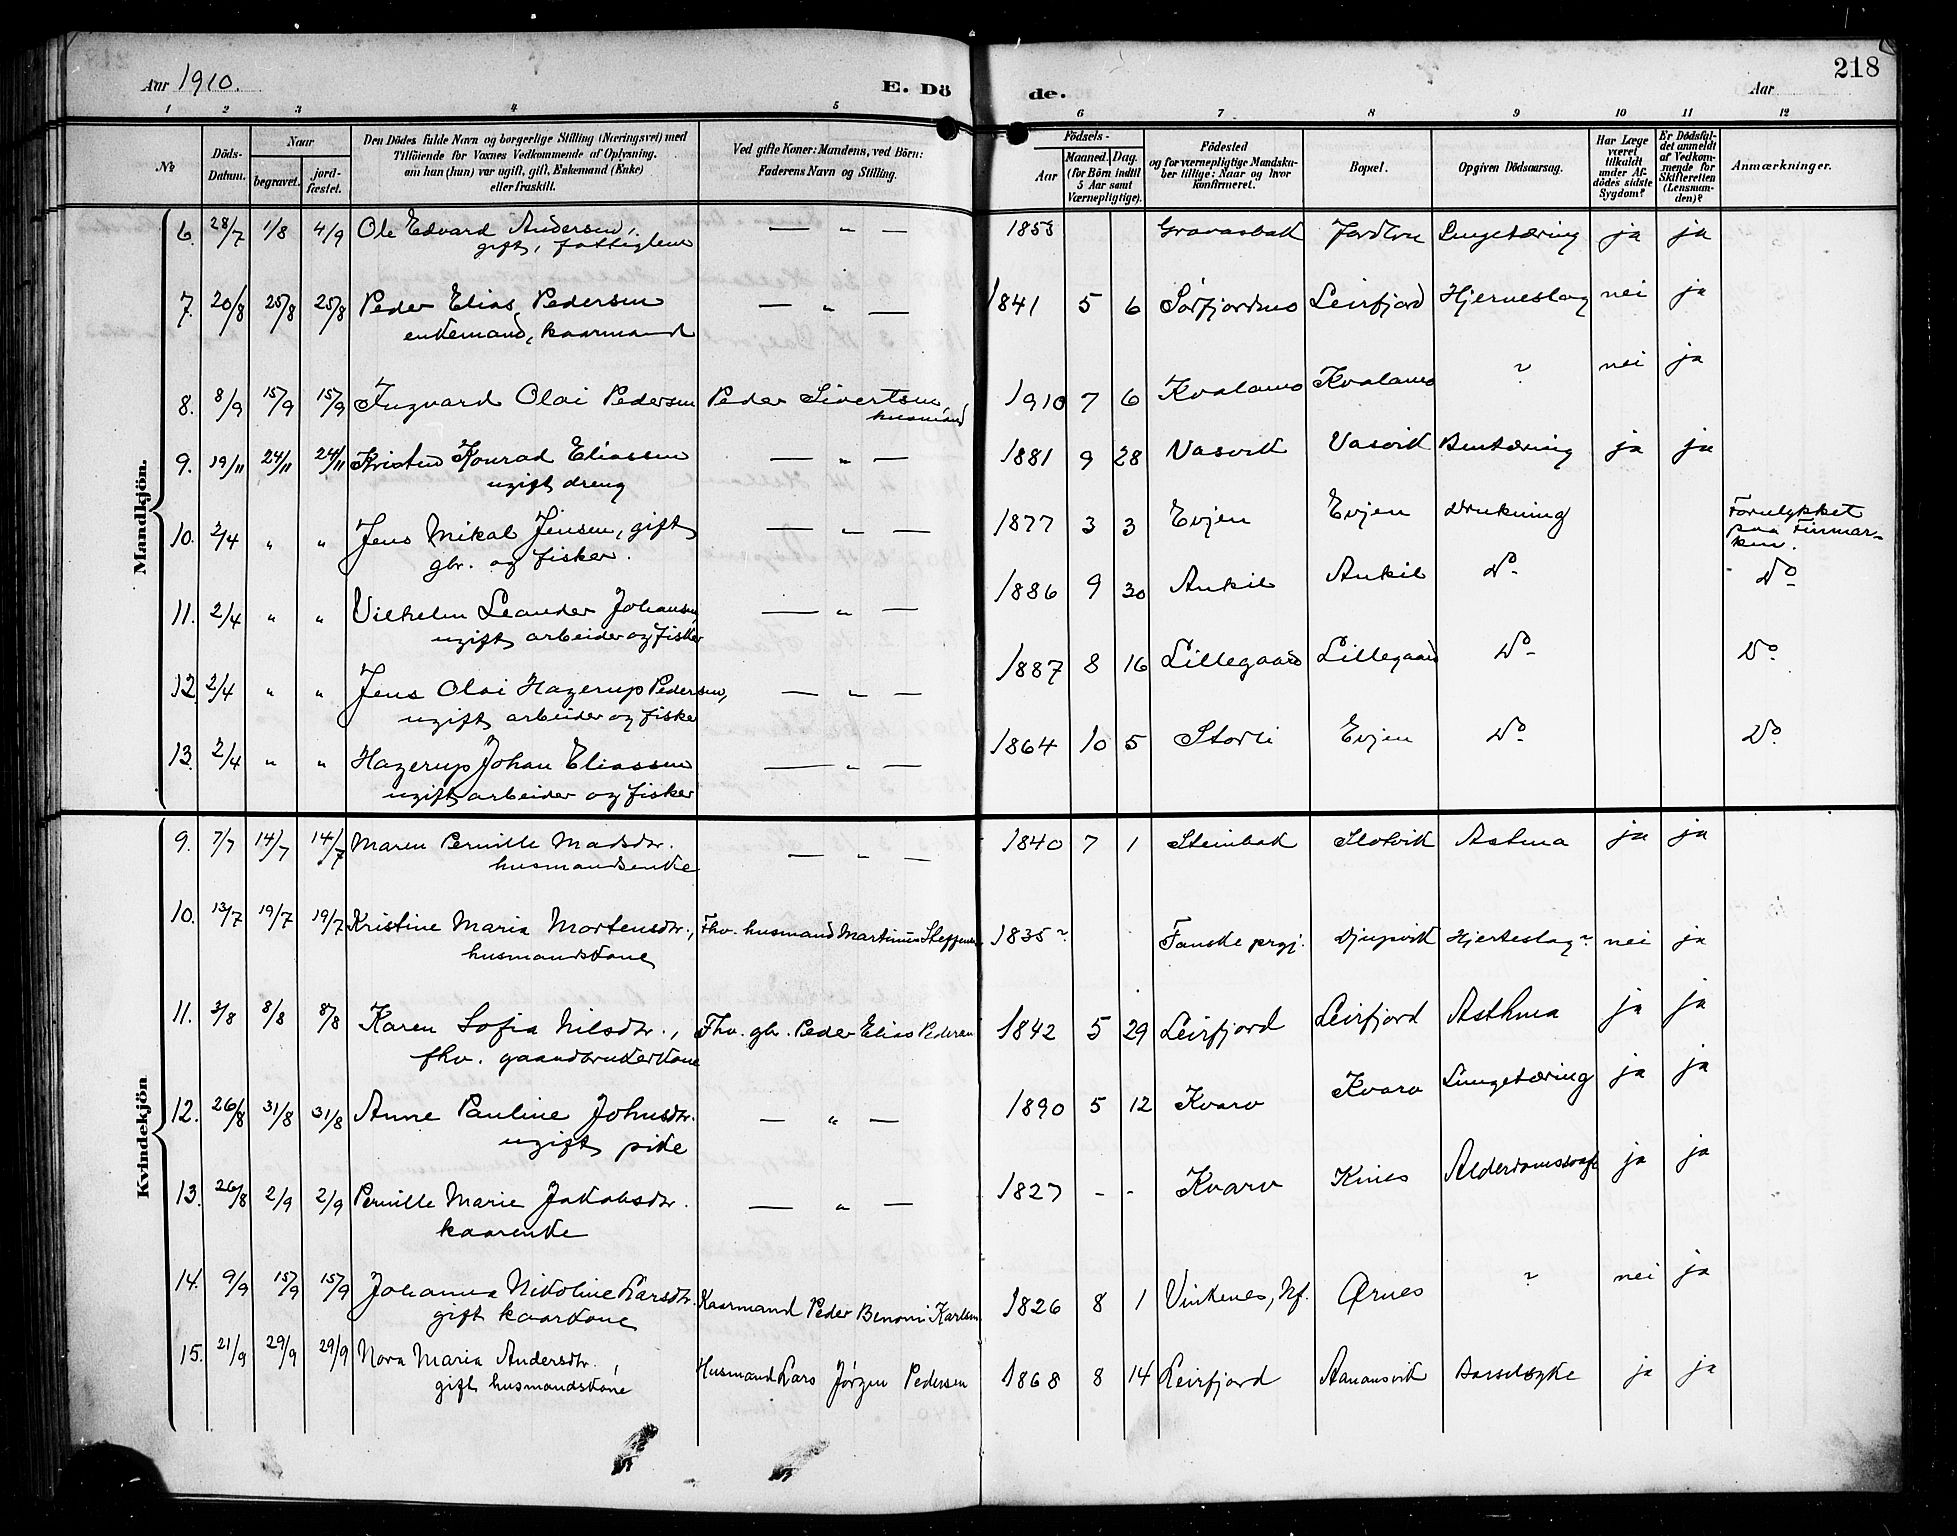 Aar 1910. E. Dö de. Aar 218
1 2 3 4 5 6 7 8 9 10 11 12
№ Döds-Datum. Naar begravet. jord-fæstet. Den Dödes fulde Navn og borgerlige Stilling (Næringsvei) med Tilföiende for Voxnes Vedkommende af Oplysning. om han (hun) var ugift, gift, Enkemand (Enke) eller fraskilt. Ved gifte Koner: Mandens, ved Börn: Faderens Navn og Stilling. Födsels- Aar Maaned. Dag. (for Börn indtil 5 Aar samt Værnepligtige). Födested og for værnepligtige Mandskaber tillige: Naar og hvor konfirmeret. Bopæl. Opgiven Dödsaarsag. Har Læge været tilkaldt under Afdödes sidste Sygdom? Er Dödsfaldet anmeldt af Vedkommende for Skifteretten (Lensmanden)? Anmærkninger.
Mandkjön.
6. 28/7 1/8 4/9 Ole Edvard Andersen, — „ — 1853 Jordbru Lungetæring ja ja
gift, fattiglem
7. 20/8 25/8 25/8 Peder Elias Pedersen — „ — 1841 5 6 Sørfjordmo Leirfjord Hjerneslag nei ja
enkemand, kaarmand
8. 8/9 15/9 15/9 Ingvard Olai Pedersen Peder Sivertsen, 1910 7 6 Kvalamo Kvalamo ? nei ja
husmand
9. 19/11 24/11 24/11 Kristen Konrad Eliassen — „ — 1881 9 28 Vasvik Vasvik Bentæring ja ja
ugift dreng
10. 2/4 „ „ Jens Mikal Jensen, gift — „ — 1877 3 3 Evjen Evjen Drukning Forulykket
gbr. og fisker. paa Finmar-
ken.
11. 2/4 „ „ Vilhelm Leander Johansen, — „ — 1886 9 30 Ankil Ankil Do Do
ugift arbeider og fisker
12. 2/4 „ „ Jens Olai Hagerup Pedersen, — „ — 1887 8 16 Lillegaard Lillegaard Do Do
ugift arbeider og fisker
13. 2/4 „ „ Hagerup Johan Eliassen — „ — 1864 10 5 Storli Evjen Do Do
ugift arbeider og fisker
Kvindekjön
9. 7/7 14/7 14/7 Maren Pernille Madsdtr. — „ — 1840 7 1 Steinbak Slotvik Astma ja ja
husmandsenke
10. 13/7 19/7 19/7 Kristine Maria Mortensdtr., Fhv. husmand Martinus Steffensen 1835? Fauske prgj. Djupvik Hjerteslag? nei ja
husmandskone
11. 3/8 8/8 8/8 Karen Sofia Nilsdtr., Fhv. gbr. Peder Elias Pedersen 1842 5 29 Leirfjord Leirfjord Asthma ja ja
fhv. gaardbrukerkone
12. 26/8 31/8 31/8 Anne Pauline Johnsdtr. — „ — 1890 5 12 Kvarv Kvarv Lungetæring ja ja
ugift pike
13. 26/8 2/9 2/9 Pernille Marie Jakobsdtr. — „ — 1827 - - Kvarv Kines Alderdomssvagh. ja ja
kaarenke
14. 9/9 15/9 15/9 Johanna Nikoline Larsdtr. Kaarmand Peder Benoni Karlsen 1826 8 1 Vinkenes, Nf. Ørnes ? nei ja
gift kaarkone
15. 21/9 29/9 29/9 Nora Maria Andersdtr., Husmand Lars Jørgen Pedersen 1868 8 14 Leirfjord Aanansvik Barselsyke ja ja
gift husmandskone